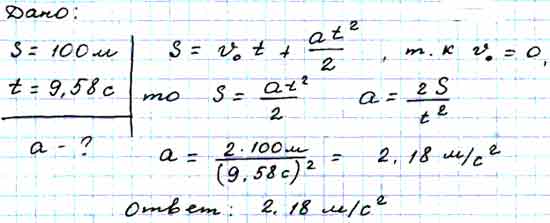 Дано:
S = 100 м
t = 9,58 с
a - ?
S = v₀ t + at²/2 , т.к v₀ = 0,
то S = at²/2 a = 2S/t²
a = 2·100м/(9,58с)² = 2.18 м/с²
Ответ: 2.18 м/с²